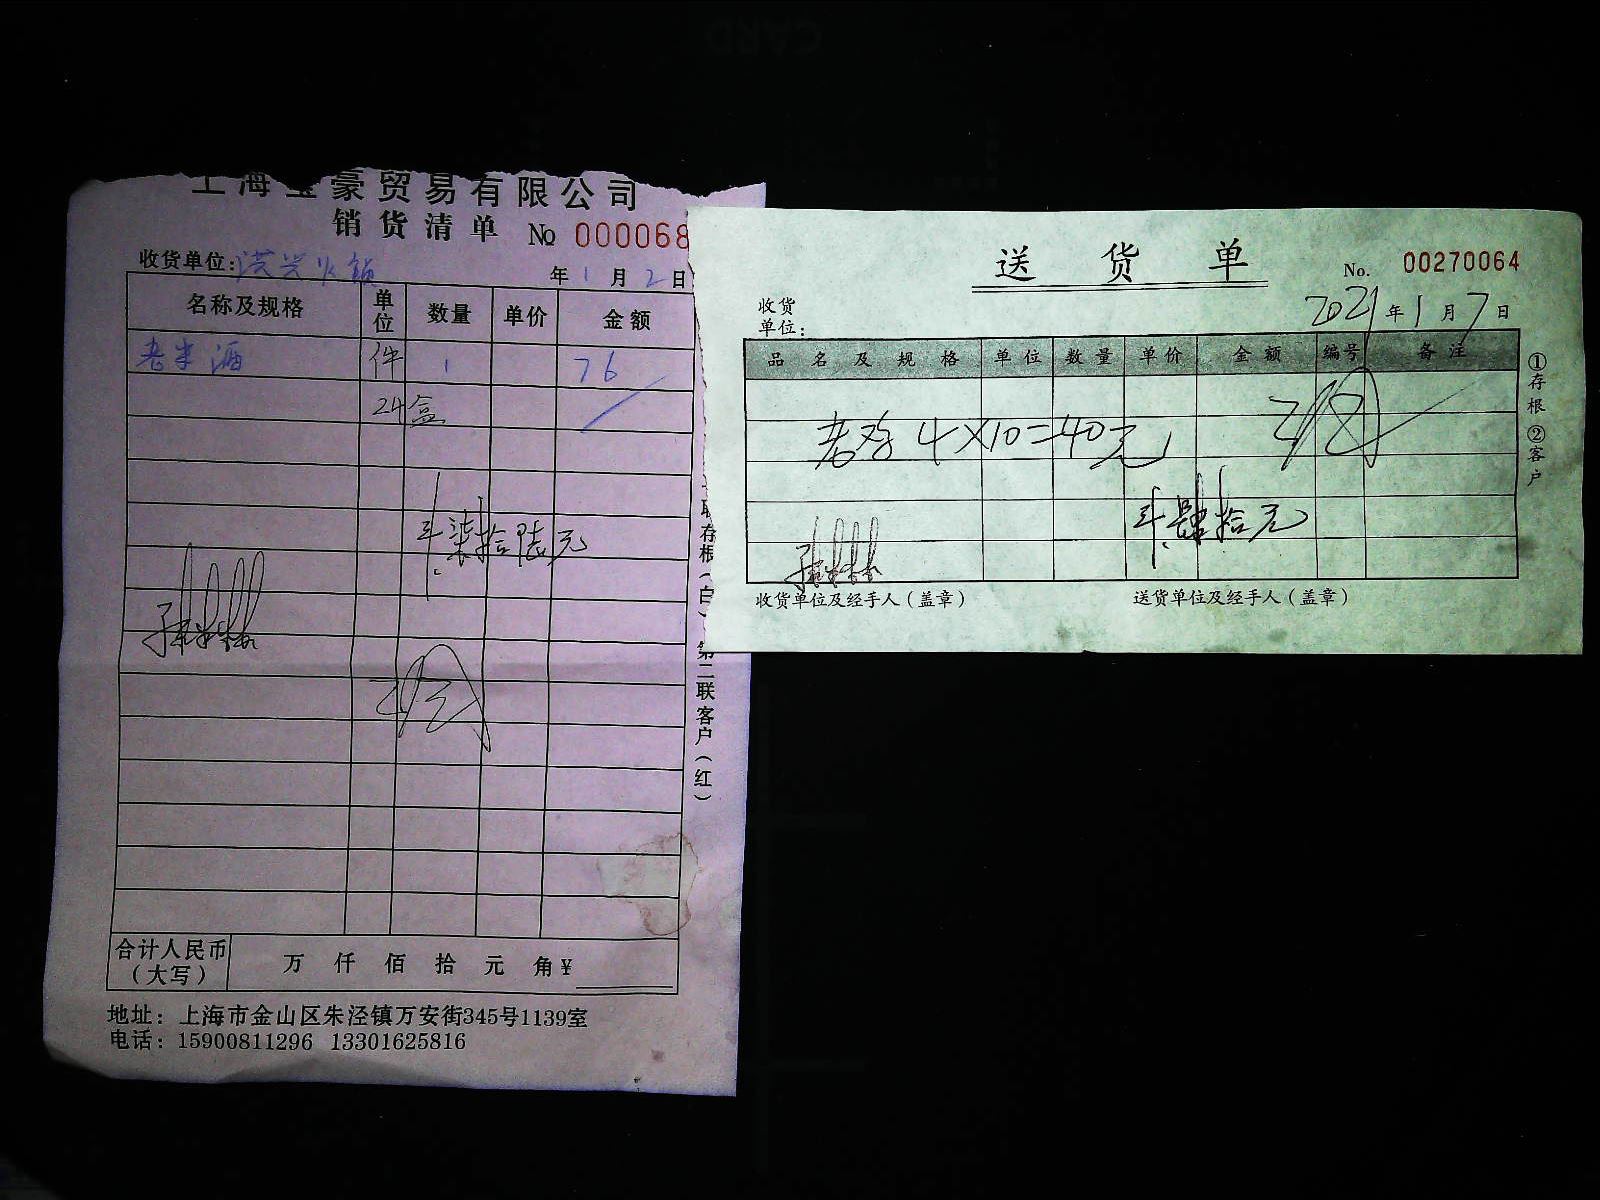 上海宝豪贸易有限公司
销货清单 No 000068
收货单位: 洪兴火锅 年 1 月 2 日
名称及规格 单位 数量 单价 金额
老米酒 件 1 76
24盒
计柒拾陆元
合计人民币（大写） 万 仟 佰 拾 元 角 ¥
地址：上海市金山区朱泾镇万安街345号1139室
电话：15900811296 13301625816
联存根（白） 第二联客户（红）
送货单
No. 00270064
收货单位： 2021 年 1 月 7 日
品名及规格 单位 数量 单价 金额 编号 备注
4×10=40元
计肆拾元
收货单位及经手人（盖章） 送货单位及经手人（盖章）
①存根 ②客户